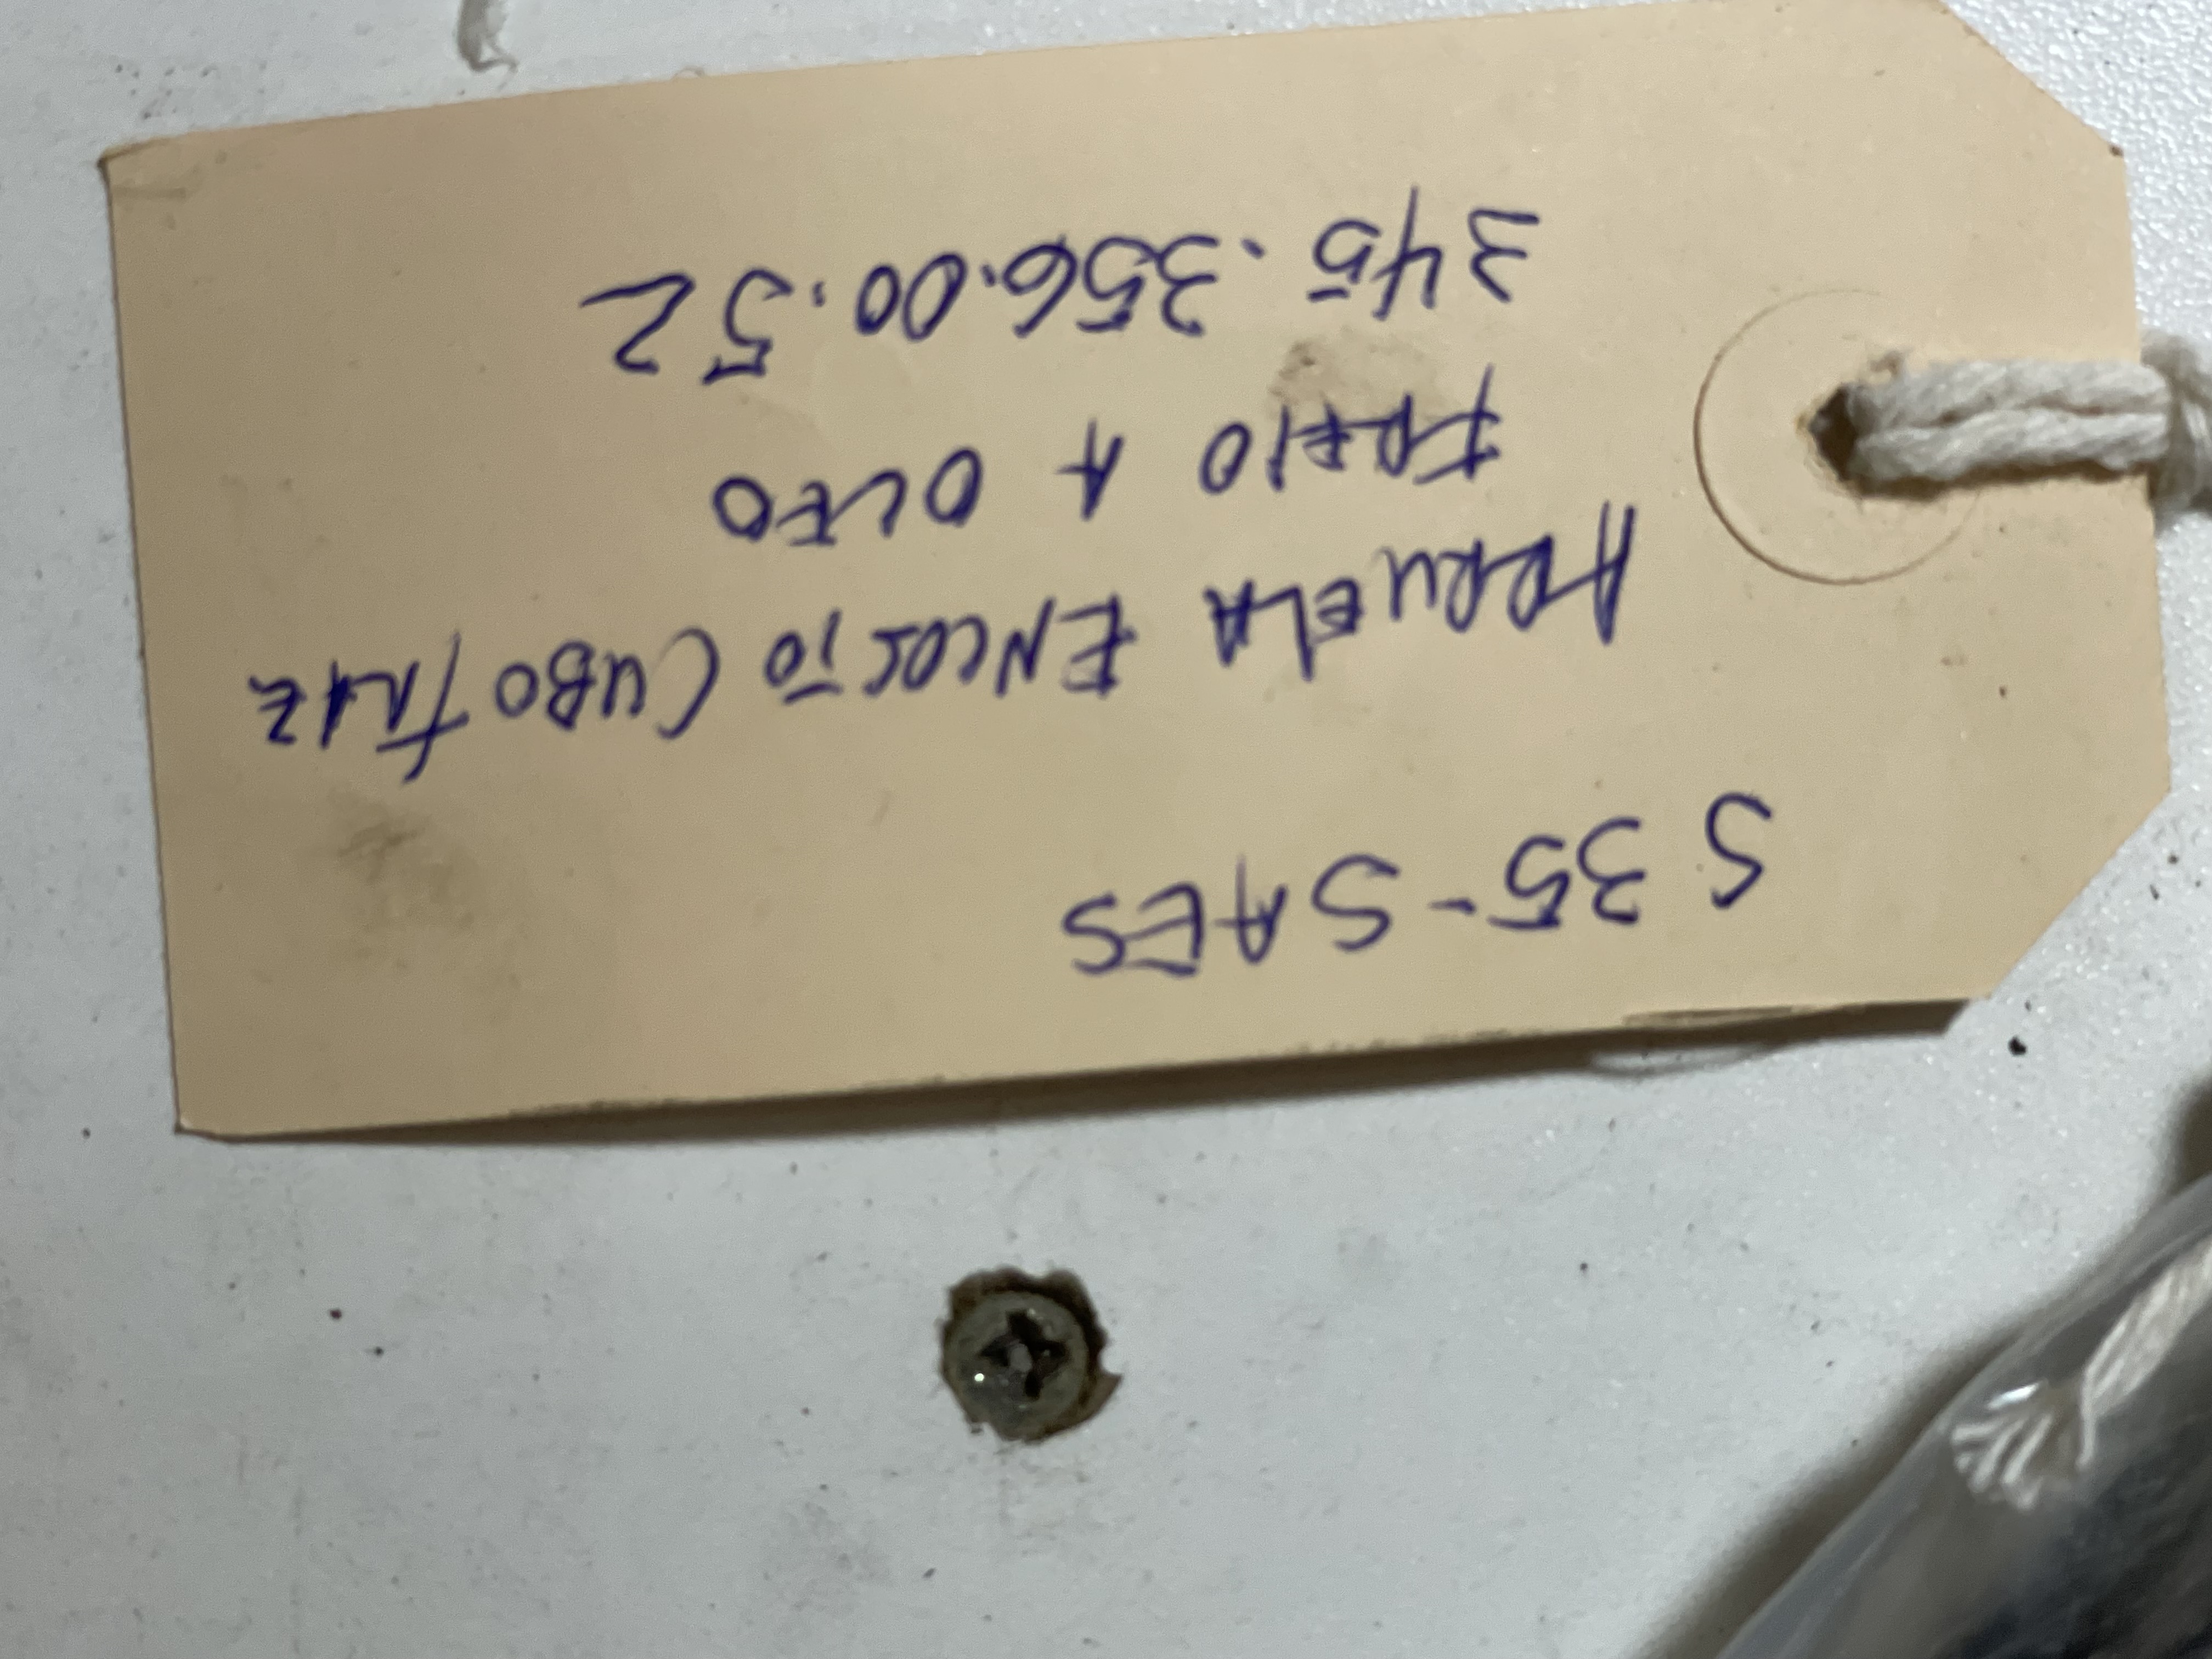 S 35 - SAES
ARRUELA ENCOSTO CUBO TRAZ
FREIO A OLEO
345.356.00.52